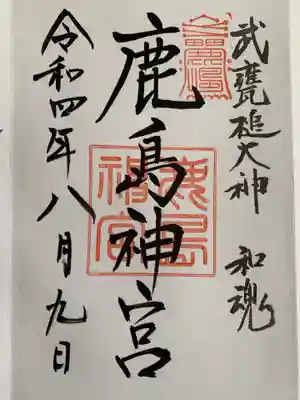 武甕槌大神 和魂
鹿島神宮
鹿島神宮
令和四年八月九日